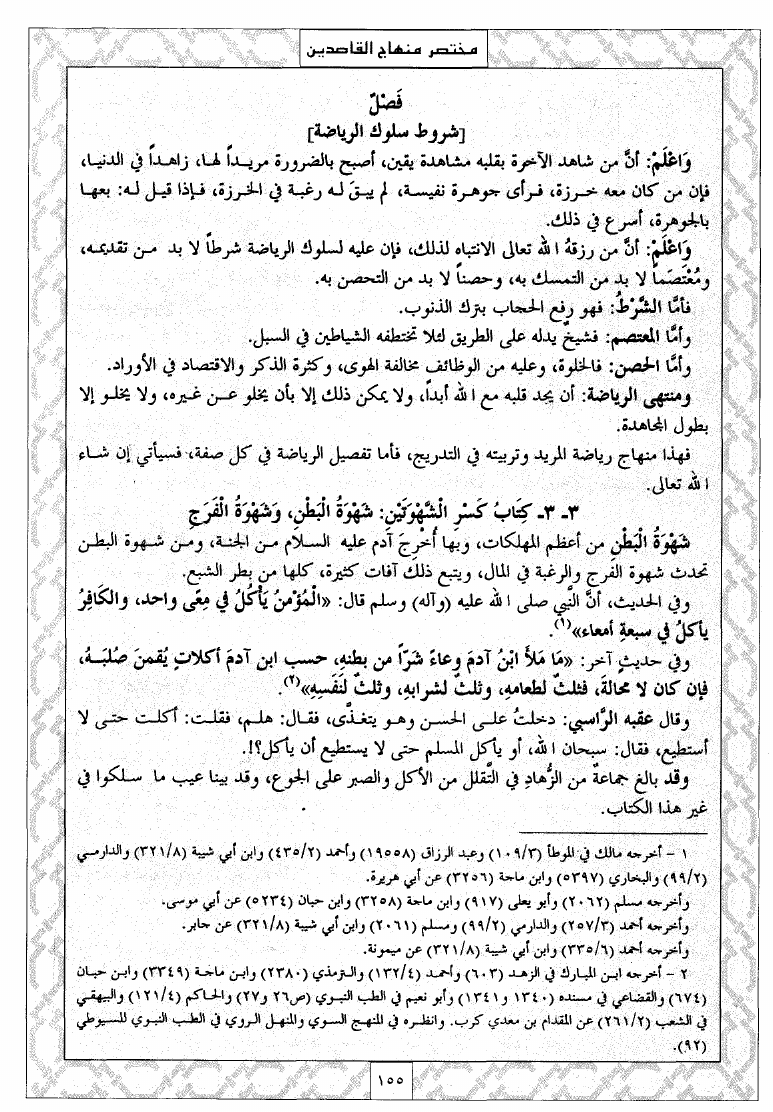 مختصر منهاج القاصدين
فَصْلٌ
[شروط سلوك الرياضة]
وَاعْلَمْ: أنَّ من شاهد الآخرة بقلبه مشاهدة يقين، أصبح بالضرورة مريداً لها، زاهداً في الدنيا،
فإن من كان معه خرزة، فرأى جوهرة نفيسة، لم يبقَ له رغبة في الخرزة، فإذا قيل له: بعها
بالجوهرة، أسرع في ذلك.
وَاعْلَمْ: أنَّ من رزقهُ الله تعالى الانتباه لذلك، فإن عليه لسلوك الرياضة شرطاً لا بد من تقديمه،
ومُعْتَصَماً لا بد من التمسك به، وحصناً لا بد من التحصن به.
فأمَّا الشَّرْطُ: فهو رفع الحجاب بترك الذنوب.
وأمَّا المعتصم: فشيخٌ يدله على الطريق لئلا تختطفه الشياطين في السبل.
وأمَّا الحصن: فالخلوة، وعليه من الوظائف مخالفة الهوى، وكثرة الذكر والاقتصاد في الأوراد.
ومنتهى الرياضة: أن يجد قلبه مع الله أبداً، ولا يمكن ذلك إلا بأن يخلو عن غيره، ولا يخلو إلا
بطول المجاهدة.
فهذا منهاج رياضة المريد وتربيته في التدريج، فأما تفصيل الرياضة في كل صفة، فسيأتي إن شاء
الله تعالى.
٣ـ ٣ـ كِتَابُ كَسْرِ الْشَّهْوَتَيْنِ: شَهْوَةُ الْبَطْنِ، وَشَهْوَةُ الْفَرَجِ
شَهْوَةُ الْبَطْنِ من أعظم المهلكات، وبها أُخْرِجَ آدم عليه السلام من الجنة، ومن شهوة البطن
تحدث شهوة الفرج والرغبة في المال، ويتبع ذلك آفات كثيرة، كلها من بطر الشبع.
وفي الحديث، أنَّ النَّبي صلى الله عليه (وآله) وسلم قال: «الْمُؤْمنُ يَأْكُلُ في مِعًى واحد، والكَافِرُ
يأكلُ في سبعةِ أمعاء»(١).
وفي حديثٍ آخر: «مَا مَلأَ ابْنُ آدمَ وِعاءً شَرّاً من بطنهِ، حسب ابن آدمَ أكلاتٍ يُقمنَ صُلبَهُ،
فإن كان لا محالةَ، فثلثٌ لطعامهِ، وثلثٌ لشرابهِ، وثلثٌ لنَفَسِهِ»(٢).
وقال عقبه الرَّاسبي: دخلتُ على الحسن وهو يتغذَّى، فقال: هلم، فقلت: أكلت حتى لا
أستطيع، فقال: سبحان الله، أو يأكل المسلم حتى لا يستطيع أن يأكل؟!.
وقد بالغ جماعةٌ من الزُّهادِ في التَّقلل من الأكل والصبر على الجوع، وقد بينا عيب ما سلكوا في
غير هذا الكتاب.
١ - أخرجه مالك في الموطأ (١٠٩/٣) وعبد الرزاق (١٩٥٥٨) وأحمد (٤٣٥/٢) وابن أبي شيبة (٣٢١/٨) والدارمي
(٩٩/٢) والبخاري (٥٣٩٧) وابن ماجة (٣٢٥٦) عن أبي هريرة.
وأخرجه مسلم (٢٠٦٢) وأبو يعلى (٩١٧) وابن ماجة (٣٢٥٨) وابن حبان (٥٢٣٤) عن أبي موسى.
وأخرجه أحمد (٢٥٧/٣) والدارمي (٩٩/٢) ومسلم (٢٠٦١) وابن أبي شيبة (٣٢١/٨) عن جابر.
وأخرجه أحمد (٣٣٥/٦) وابن أبي شيبة (٣٢١/٨) عن ميمونة.
٢ - أخرجه ابن المبارك في الزهد (٦٠٣) وأحمد (١٣٢/٤) والترمذي (٢٣٨٠) وابن ماجة (٣٣٤٩) وابن حبان
(٦٧٤) والقضاعي في مسنده (١٣٤٠ و١٣٤١) وأبو نعيم في الطب النبوي (ص٢٦ و٢٧) والحاكم (١٢١/٤) والبيهقي
في الشعب (٢٦١/٢) عن المقدام بن معدي كرب. وانظره في المنهج السوي والمنهل الروي في الطب النبوي للسيوطي
(٩٢).
١٥٥